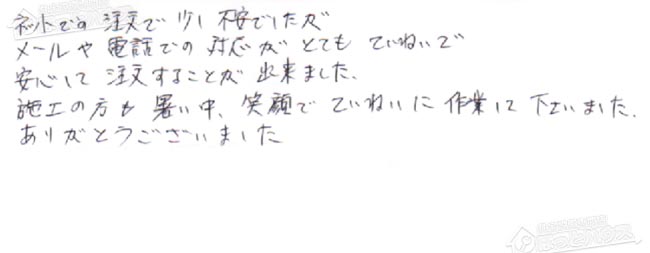 ネットでの注文で少し不安でしたが
メールや電話での対応がとてもていねいで
安心して注文することが出来ました.
施工の方も暑い中、笑顔でていねいに作業して下さいました.
ありがとうございました